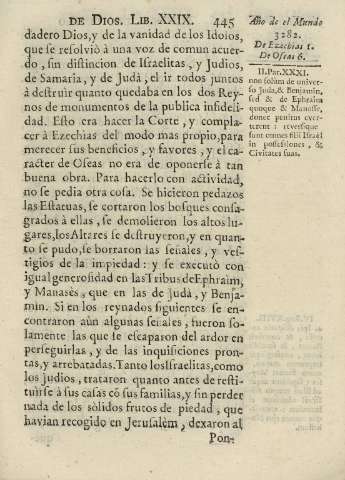 DE DIOS. LIB. XXIX. 445
dadero Dios, y de la vanidad de los Idolos,
que se resolviò à una voz de comun acuer-
do, sin distincion de Israelitas, y Judios,
de Samaria, y de Judà, el ir todos juntos
à destruir quanto quedaba en los dos Rey-
nos de monumentos de la publica infideli-
dad. Esto era hacer la Corte, y compla-
cer à Ezechias del modo mas propio, para
merecer sus beneficios, y favores, y el ca-
racter de Oseas no era de oponerse à tan
buena obra. Para hacerlo con actividad,
no se pedia otra cosa. Se hicieron pedazos
las Estatuas, se cortaron los bosques consa-
grados à ellas, se demolieron los altos lu-
gares, los Altares se destruyeron, y en quan-
to se pudo, se borraron las señales, y ves-
tigios de la impiedad: y se executò con
igual generosidad en las Tribus de Ephraim,
y Manasès, que en las de Judà, y Benja-
min. Si en los reynados siguientes se en-
contraron aùn algunas señales, fueron so-
lamente las que se escaparon del ardor en
perseguirlas, y de las inquisiciones pron-
tas, y arrebatadas. Tanto los Israelitas, como
los Judios, trataron quanto antes de resti-
tuirse à sus casas cõ sus familias, y sin perder
nada de los sòlidos frutos de piedad, que
havian recogido en Jerusalèm, dexaron al
Pon-
Año de el Mundo
3282.
De Ezechias 1.
De Oseas 6.
II. Par. XXXI.
non solùm de univer-
so Juda, & Benjamin,
sed & de Ephraim
quoque & Manasse,
donec penitus ever-
terent: reversique
sunt omnes filii Israel
in possesiones, &
Civitates suas.